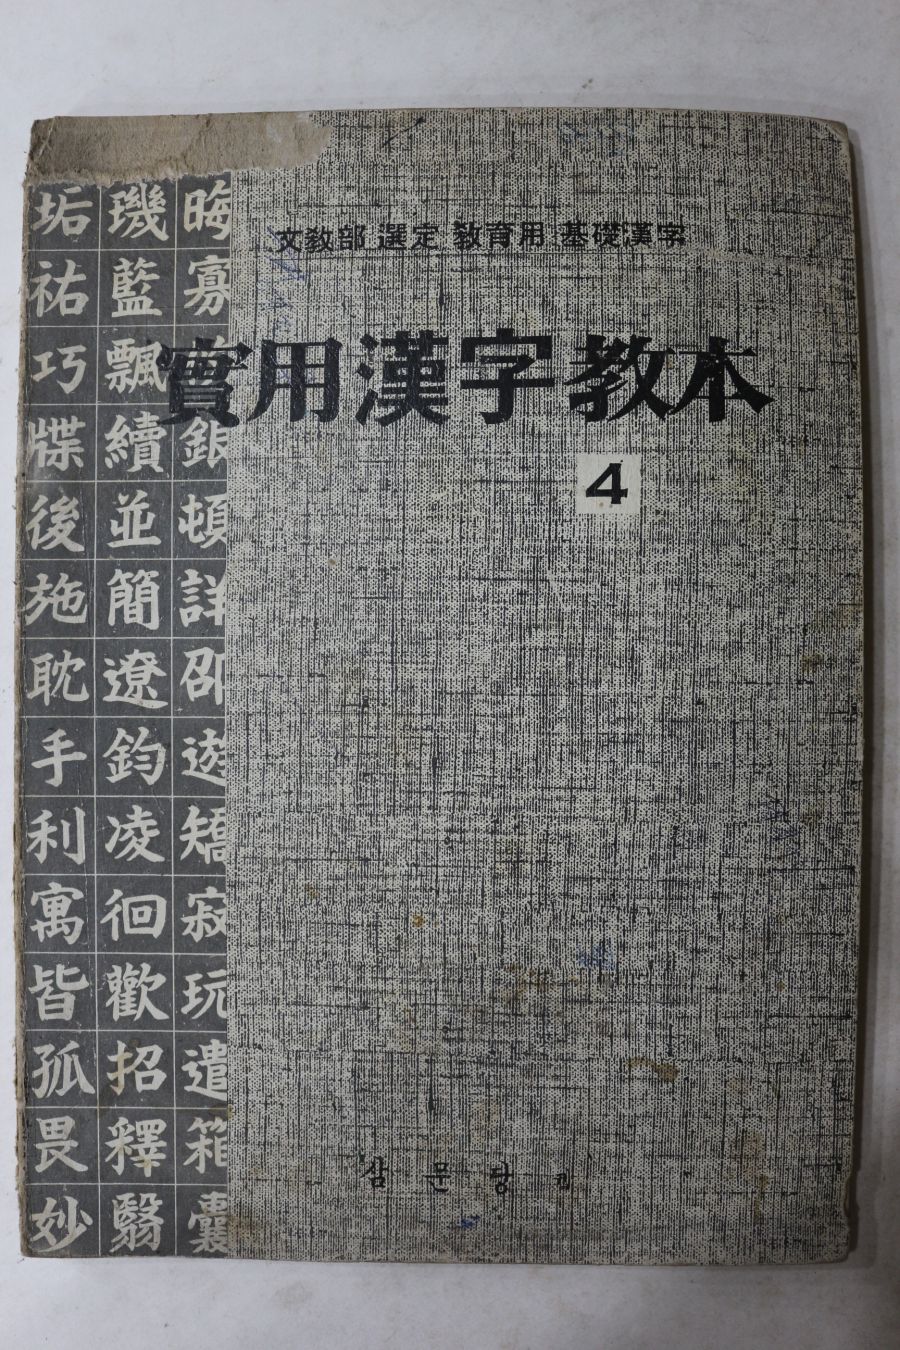 文敎部 選定 敎育用 基礎漢字
實用漢字敎本
4
垢 璣 晦
祐 藍 寡
巧 飄
牒 續 銀
後 並 頓
施 簡 詳
耽 遼 邵
手 鈞 遊
利 凌 矯
寓 徊 寂
皆 歡 玩
孤 招 遣
畏 釋 箱
妙 翳 囊
삼문당